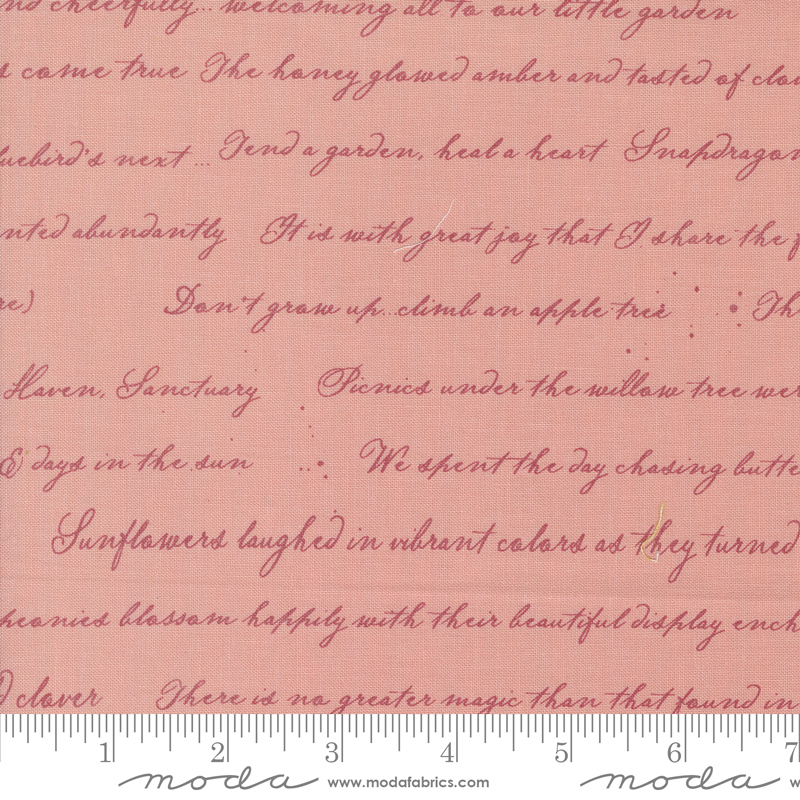 nd cheerfully... welcoming all to our little garden
s come true The honey glowed amber and tasted of clov
luebird's next ... Tend a garden, heal a heart Snapdragon
nted abundantly It is with great joy that I share the f
re) Don't grow up...climb an apple tree Th
Haven, Sanctuary Picnics under the willow tree wer
& days in the sun We spent the day chasing butte
Sunflowers laughed in vibrant colors as they turned
peonies blossom happily with their beautiful display ench
d clover There is no greater magic than that found in
1 2 3 4 5 6 7
moda www.modafabrics.com moda w